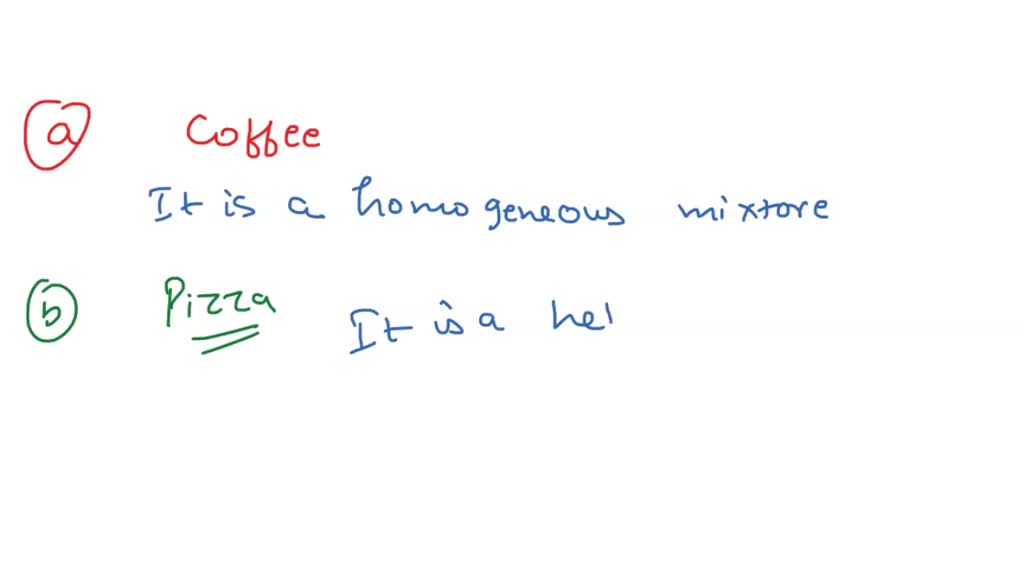 a Coffee
It is a homogeneous mixtore
b Pizza It is a hel